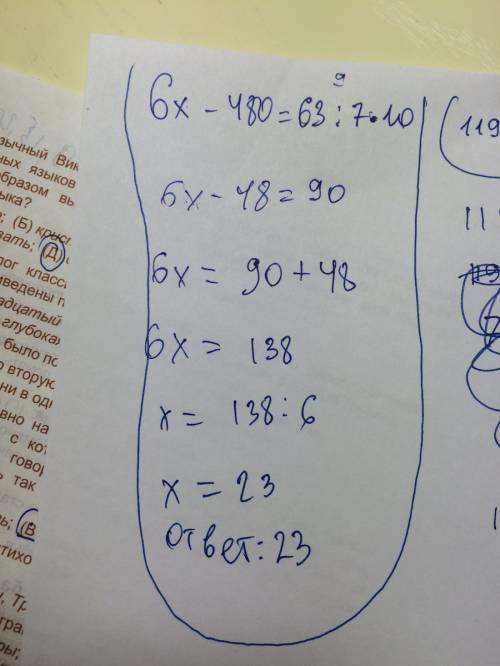 9
6x - 480 = 63 : 7 • 10
6x - 48 = 90
6x = 90 + 48
6x = 138
x = 138 : 6
x = 23
ответ: 23
(119
11
1
язычный Вик
ных языков
образом вы
ыка?
; (Б) крист
вать; (Д)
лог класс
иведены п
адцатый
глубока
было по
о вторую
ни в одн
вно на
с кот
говор
ь так
ь; (В
стихо
у, Тр
игра
ры;